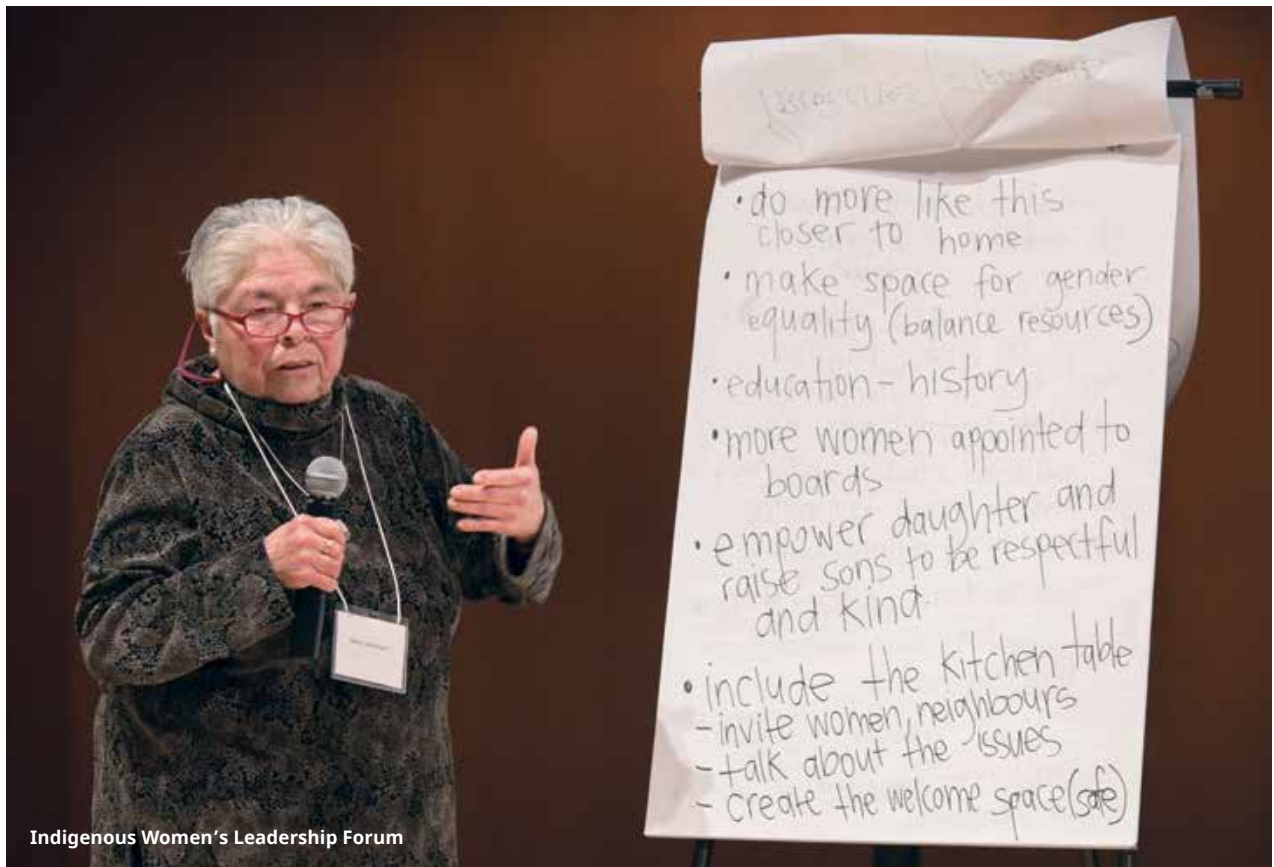 •do more like this
closer to home
•make space for gender
equality (balance resources)
•education - history
•more women appointed to
boards
•empower daughter and
raise sons to be respectful
and kind
•include the kitchen table
-invite women, neighbours
-talk about the issues
- create the welcome space (safe)
Indigenous Women's Leadership Forum